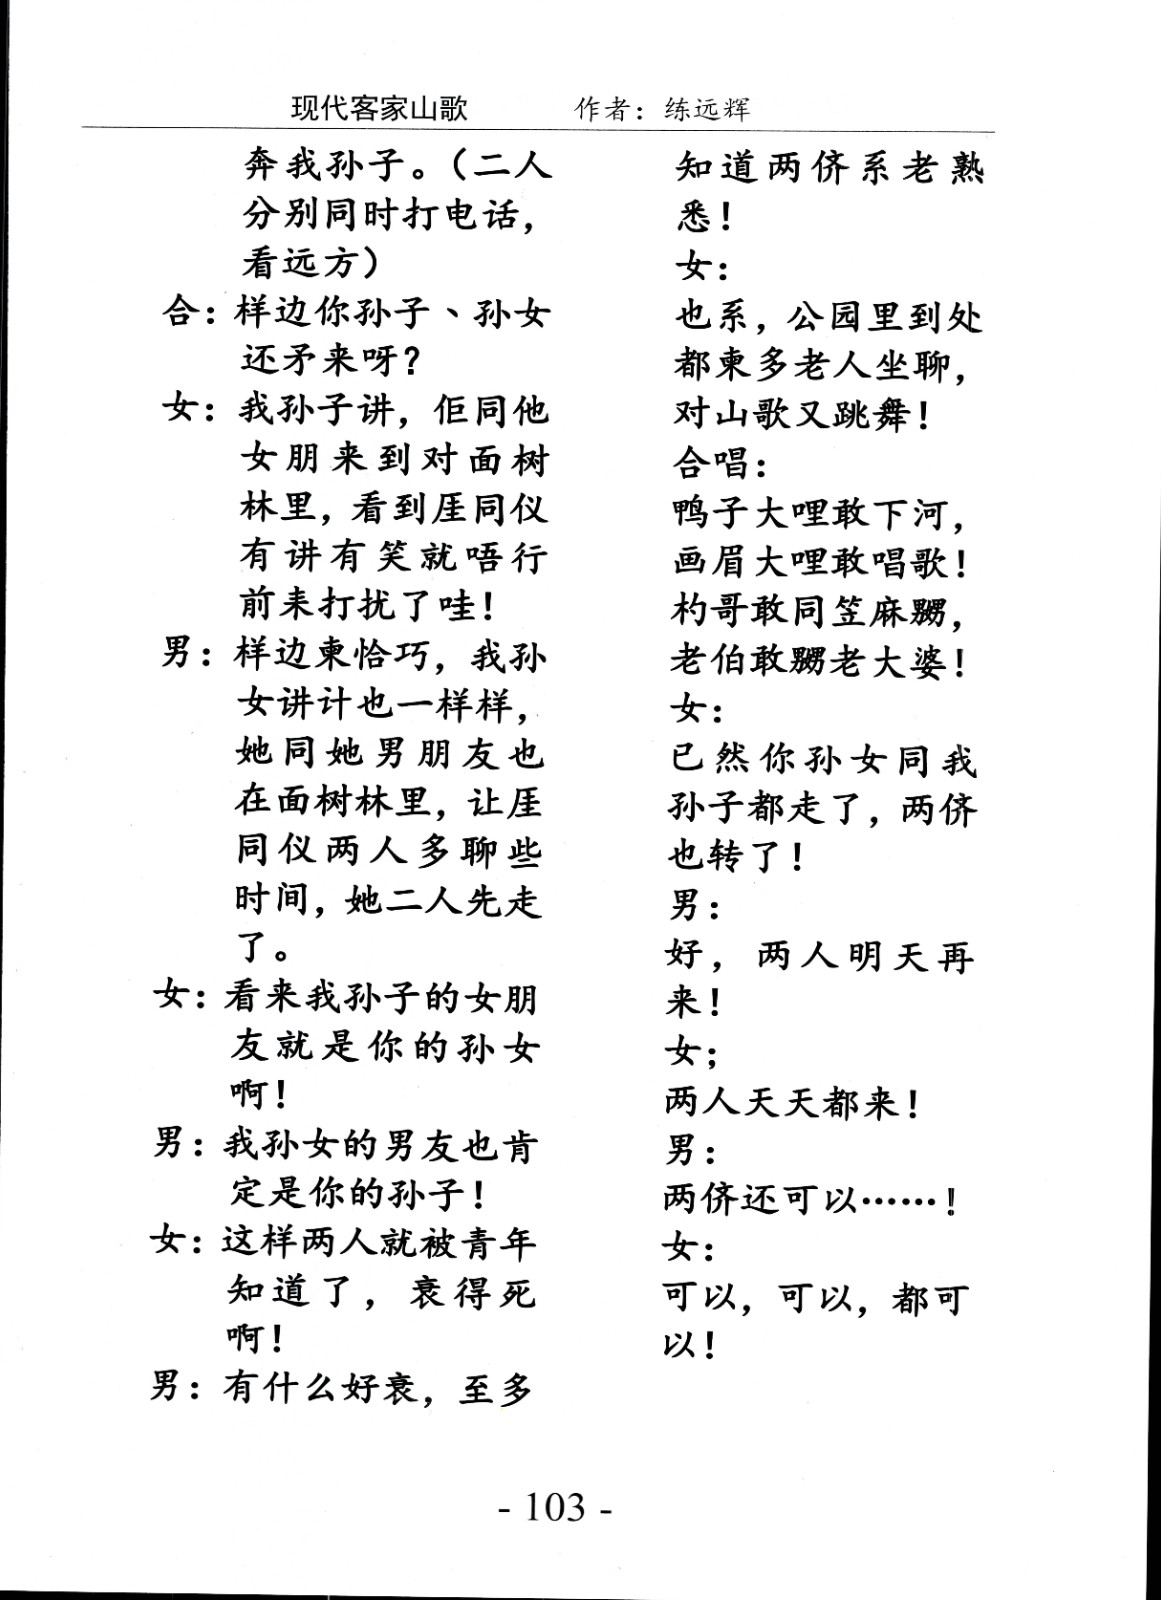 现代客家山歌 作者：练远辉
奔我孙子。（二人
分别同时打电话，
看远方）
合：样边你孙子、孙女
还矛来呀？
女：我孙子讲，佢同他
女朋来到对面树
林里，看到厓同仪
有讲有笑就唔行
前来打扰了哇！
男：样边柬恰巧，我孙
女讲计也一样样，
她同她男朋友也
在面树林里，让厓
同仪两人多聊些
时间，她二人先走
了。
女：看来我孙子的女朋
友就是你的孙女
啊！
男：我孙女的男友也肯
定是你的孙子！
女：这样两人就被青年
知道了，衰得死
啊！
男：有什么好衰，至多
知道两侪系老熟
悉！
女：
也系，公园里到处
都柬多老人坐聊，
对山歌又跳舞！
合唱：
鸭子大哩敢下河，
画眉大哩敢唱歌！
杓哥敢同笠麻嬲，
老伯敢嬲老大婆！
女：
已然你孙女同我
孙子都走了，两侪
也转了！
男：
好，两人明天再
来！
女；
两人天天都来！
男：
两侪还可以……！
女：
可以，可以，都可
以！
- 103 -